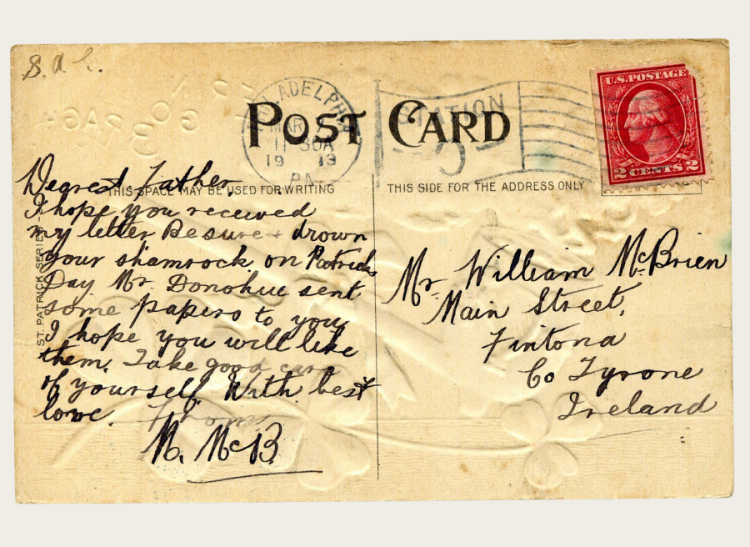 S.A.L.
ERIN
GO
BRAGH
PHILADELPHIA
MAR
11 30A
19 13
PA.
STATION
POST CARD
U.S. POSTAGE
2 CENTS 2
THIS SPACE MAY BE USED FOR WRITING
THIS SIDE FOR THE ADDRESS ONLY
ST. PATRICK SERIES
Dearest Father,
I hope you received
my letter Be sure + drown
your shamrock on Patricks
Day Mr. Donohue sent
some papers to you,
I hope you will like
them. Take good care
of yourself. With best
love. From
M. McB.
Mr William McBrien
Main Street,
Fintona
Co Tyrone
Ireland